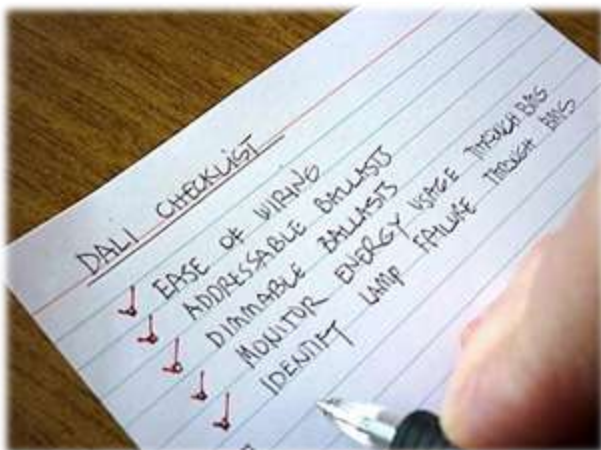 DALI CHECKLIST
EASE OF WIRING
ADDRESSABLE BALLASTS
DIMMABLE BALLASTS
MONITOR ENERGY USAGE THROUGH BMS
IDENTIFY LAMP FAILURE THROUGH BMS